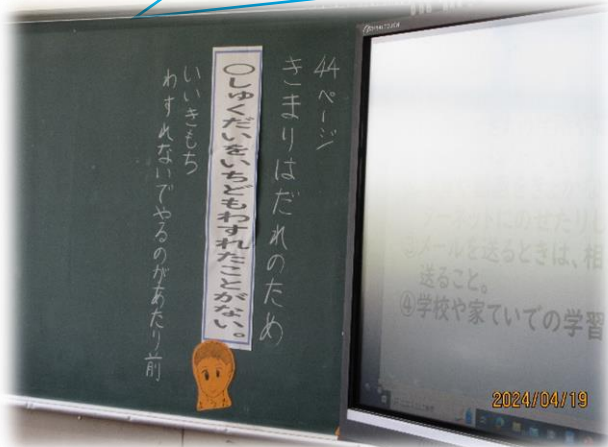 44ページ
きまりはだれのため
○しゅくだいをいちどもわすれたことがない。
いいきもち
わすれないでやるのがあたり前
ーネットにのせたりし
メールを送るときは、相
送ること。
④学校や家ていでの学習
2024/04/19